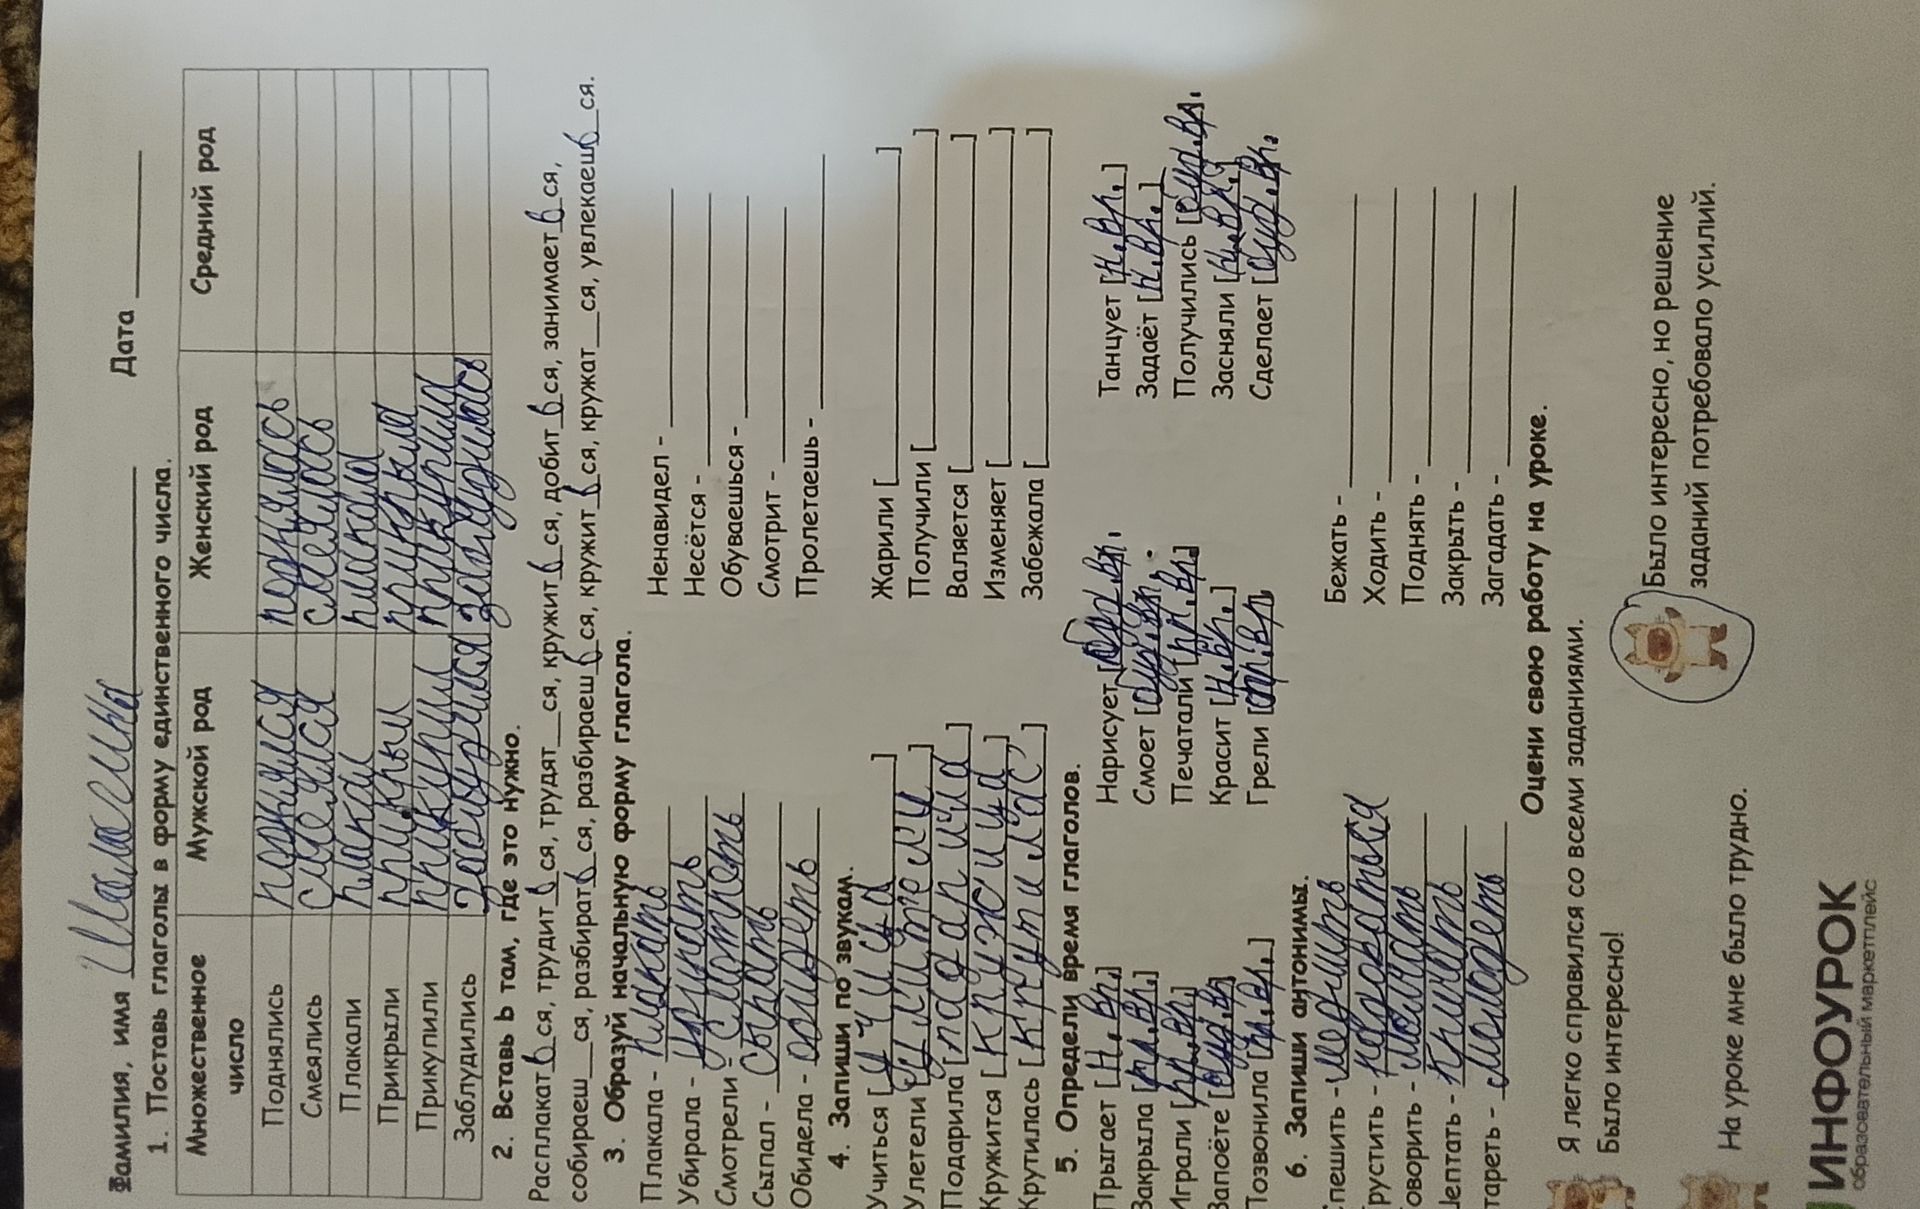 Фамилия, имя Дата
1. Поставь глаголы в форму единственного числа.
Множественное число Мужской род Женский род Средний род
Поднялись поднялся поднялась
Смеялись смеялся смеялась
Плакали плакал плакала
Прикрыли прикрыл прикрыла
Прикупили прикупил прикупила
Заблудились заблудился заблудилась
2. Вставь Ь там, где это нужно.
Расплакат ь ся, трудит ь ся, трудят__ся, кружит ь ся, добит ь ся, занимает ь ся,
собираеш__ся, разбират ь ся, разбираеш ь ся, кружит ь ся, кружат__ся, увлекаеш ь ся.
3. Образуй начальную форму глагола.
Плакала - плакать Ненавидел -
Убирала - Несётся -
Смотрели - смотреть Обуваешься -
Сыпал - сыпать Смотрит -
Обидела - Пролетаешь -
4. Запиши по звукам.
Учиться [учица] Жарили [ ]
Улетели [улители] Получили [ ]
Подарила [падарила] Валяется [ ]
Кружится [кружица] Изменяет [ ]
Крутилась [крутилас] Забежала [ ]
5. Определи время глаголов.
Прыгает [н.вр.] Нарисует [буд.вр. Танцует [н.вр.]
Закрыла [пр.вр.] Смоет [буд.вр. Задаёт [н.вр.]
Играли [пр.вр.] Печатали [пр.вр.] Получились [буд.вр.
Запоёте [буд.вр Красит [н.вр.] Засняли [н.вр.]
Позвонила [п.вр.] Грели [пр.вр Сделает [буд.вр.
6. Запиши антонимы.
Спешить - Бежать -
Грустить - Ходить -
Говорить - молчать Поднять -
Шептать - кричать Закрыть -
Стареть - молодеть Загадать -
Оцени свою работу на уроке.
Я легко справился со всеми заданиями.
Было интересно!
Было интересно, но решение
заданий потребовало усилий.
На уроке мне было трудно.
ИНФОУРОК
образовательный маркетплейс